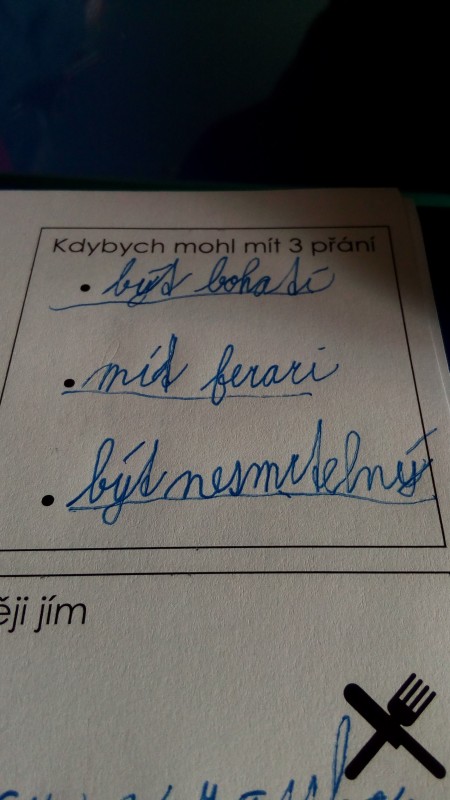 Kdybych mohl mít 3 přání
• být bohatí
• mít ferari
• být nesmrtelný
ěji jím